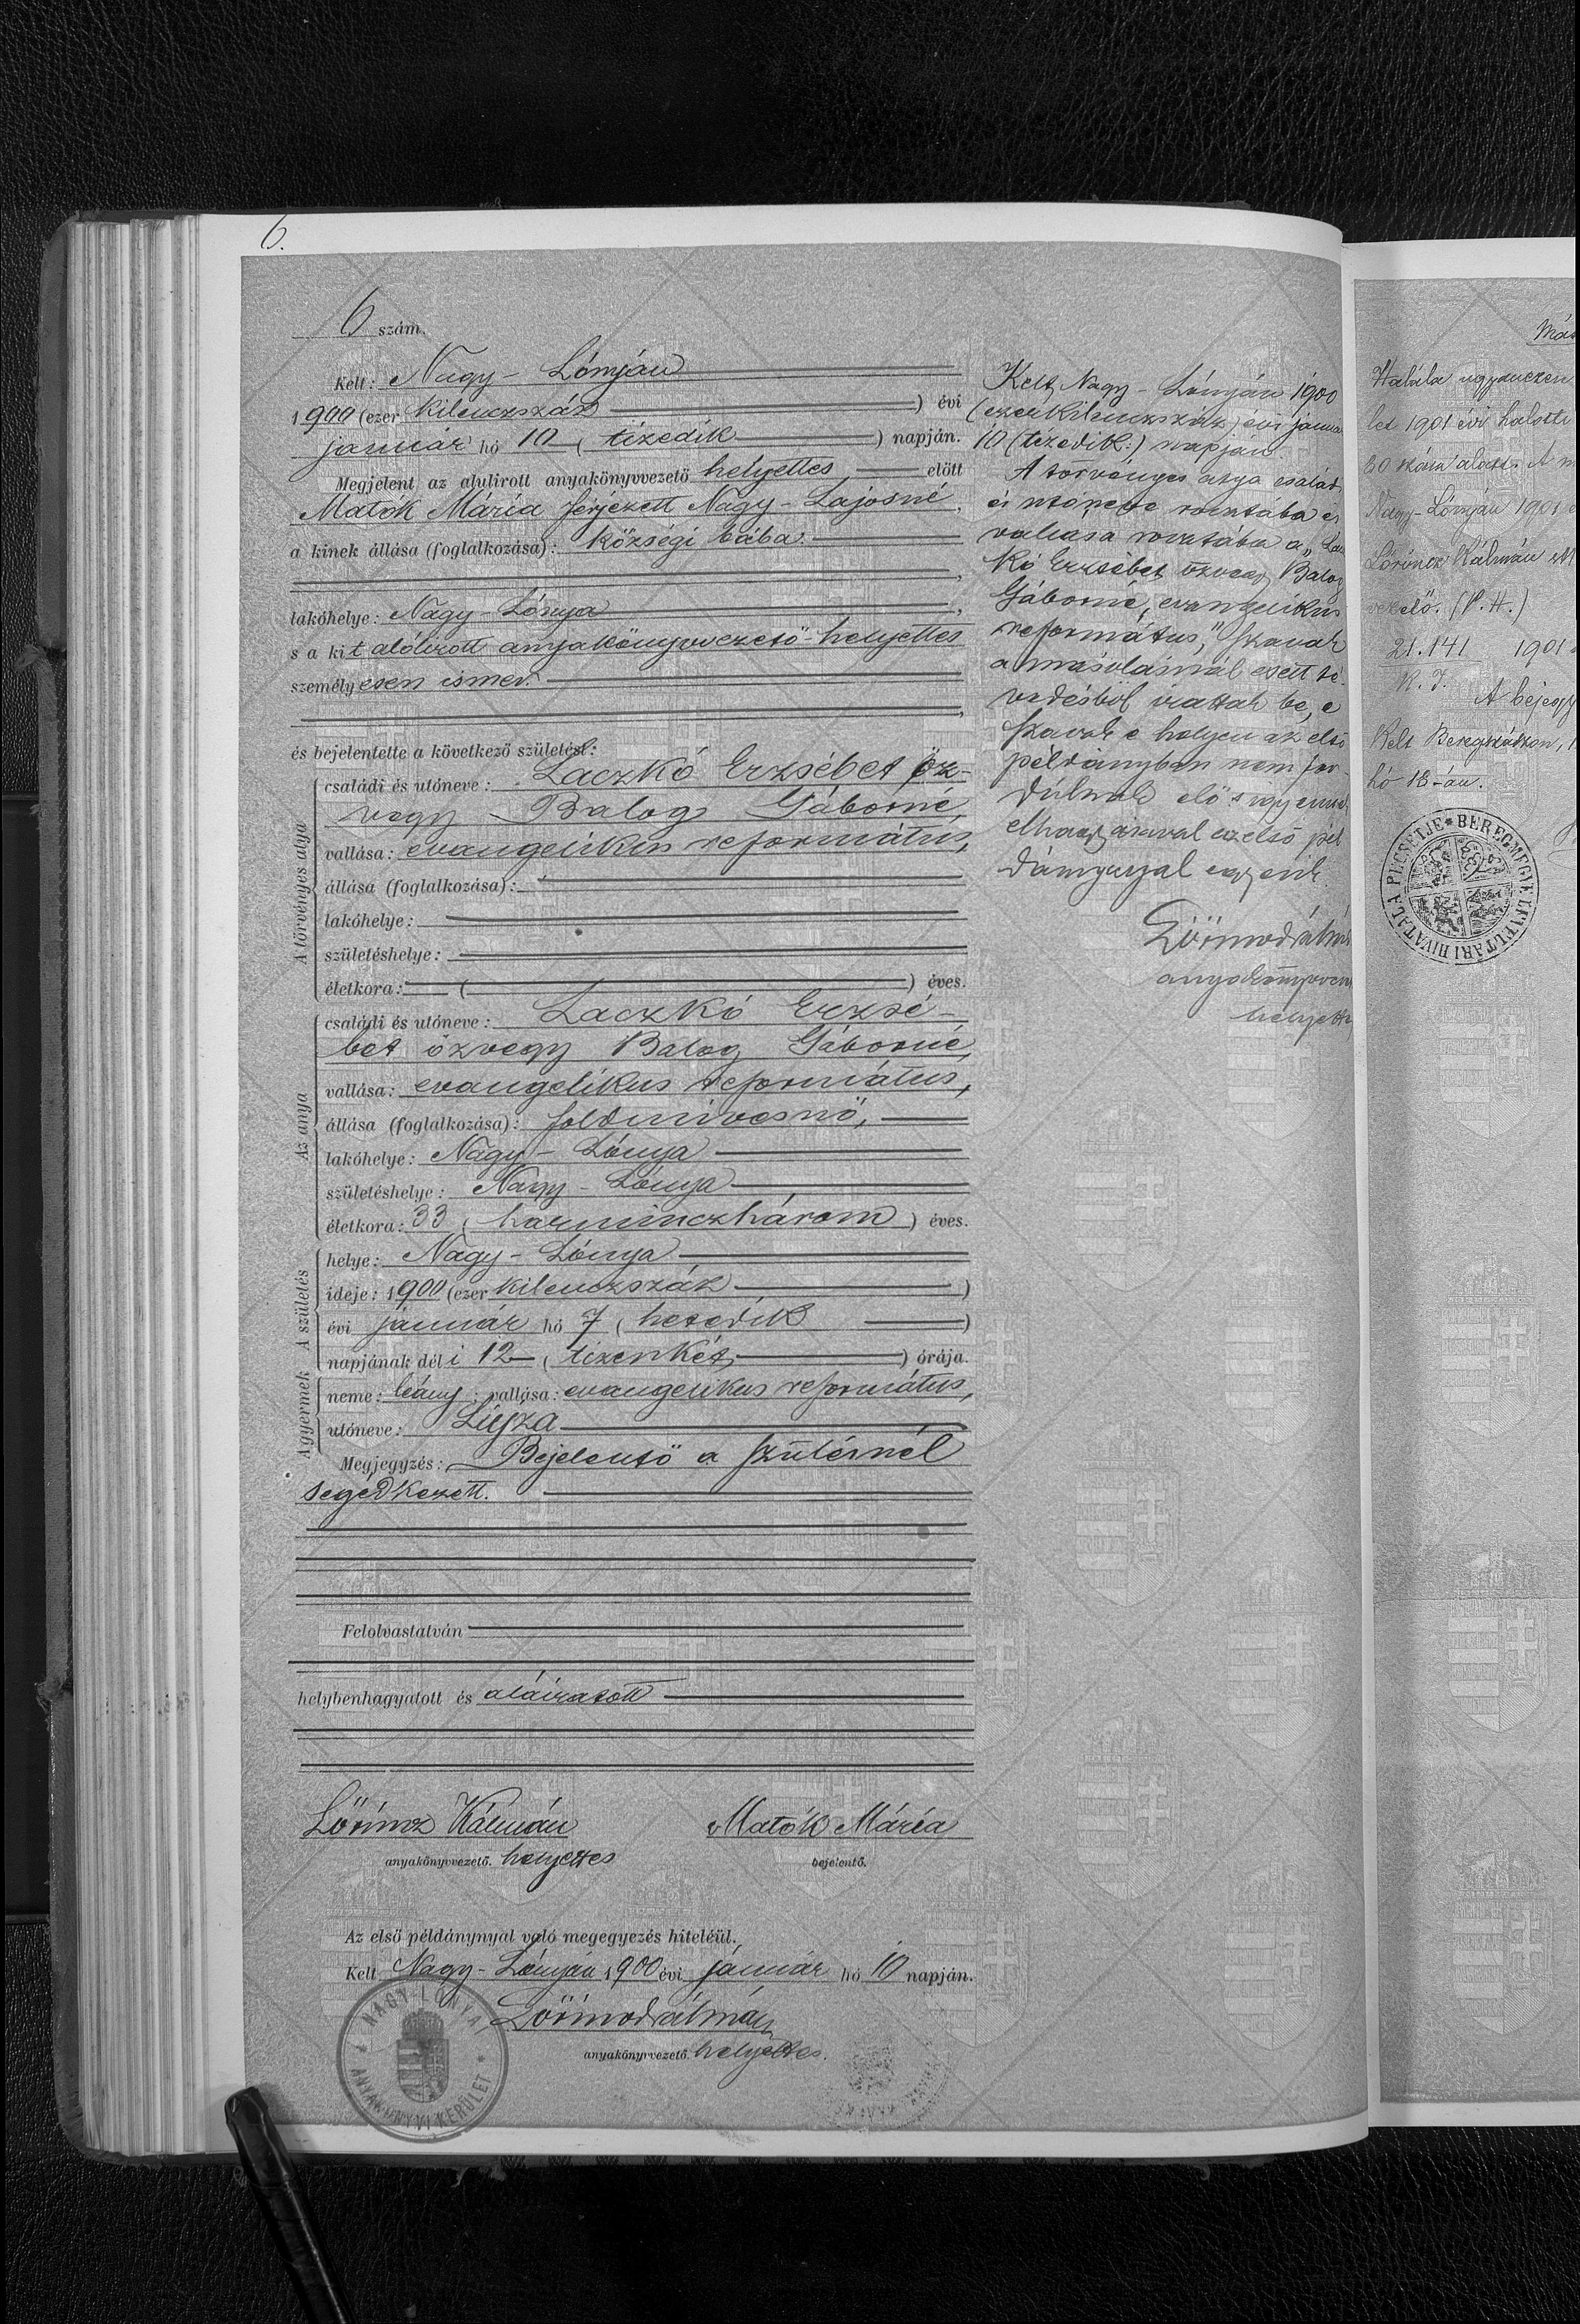 6.
6 szám.
Kelt: Nagy-Lónyán
1900 (ezer kilenczszáz) évi
január hó 10 (tizedik) napján.
Megjelent az alulirott anyakönyvvezető helyettes előtt
Matók Mária férjezett Nagy-Lajosné,
a kinek állása (foglalkozása): községi bába.
lakóhelye: Nagy-Lónya,
s a kit alólirott anyakönyvvezető-helyettes
személyesen ismer.
és bejelentette a következő születést:
A törvényes atyja
családi és utóneve: Laczkó Erzsébet öz-
vegy Balog Gáborné,
vallása: evangelikus református,
állása (foglalkozása):
lakóhelye:
születéshelye:
életkora: ( ) éves.
Az anya
családi és utóneve: Laczkó Erzsé-
bet özvegy Balog Gáborné,
vallása: evangelikus református,
állása (foglalkozása): földmivesnő,
lakóhelye: Nagy-Lónya
születéshelye: Nagy-Lónya
életkora: 33 (harminczhárom) éves.
A születés
helye: Nagy-Lónya
ideje: 1900 (ezer kilenczszáz)
évi január hó 7 (hetedik)
napjának déli 12 (tizenkét) órája.
A gyermek
neme: leány; vallása: evangelikus református,
utóneve: Lujza
Megjegyzés: Bejelentő a szülésnél
segédkezett.
Felolvastatván
helybenhagyatott és aláiratott
Lőrincz Kálmán
anyakönyvvezető. helyettes
Matók Mária
bejelentő.
Az első példánynyal való megegyezés hiteléül.
Kelt Nagy-Lónyán 1900 évi január hó 10 napján.
Lőrincz Kálmán
anyakönyvvezető. helyettes.
NAGY LÓNYAI
ANYAKÖNYVI KERÜLET
Kelt, Nagy-Lónyán 1900
(ezerkilenczszáz) évi janua
10 (tizedik) napján.
A törvényes atya család
és utóneve rovatába és
vallása rovatába a „Lacz
kó Erzsébet özvegy Balog
Gáborné, evangelikus
református," szavak
a másolásnál esett té-
vedésből irattak be, e
szavak e helyen az első
példányban nem for-
dúlnak elő s igy ennek
elhagyásával az első pél
dánnyal egyezik.
Lőrincz Kálmán
anyakönyvvez
helyette
Más
Halála ugyanezen
let 1901 évi halotti
30 szám alatt. A
Nagy-Lónyán 1901
Lőrincz Kálmán
vezető. (P. H.)
21.141 1901
A bejegy
Kelt Beregszászon,
hó 18-án.
BEREGMEGYE LEVÉLTÁRI HIVATALA PECSÉTJE